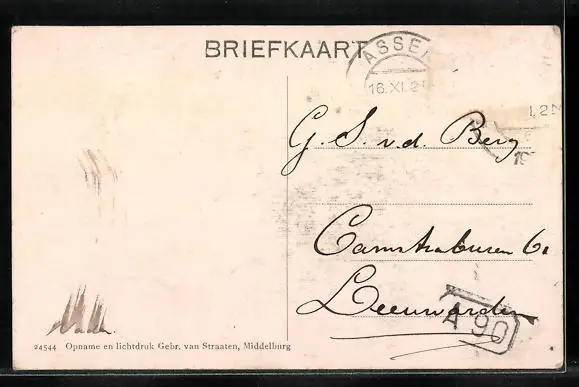 BRIEFKAART
ASSE
16.XI.2
G. S. v. d. Berg
Camstraburen 61
Leeuwarden
A 90
24544 Opname en lichtdruk Gebr. van Straaten, Middelburg